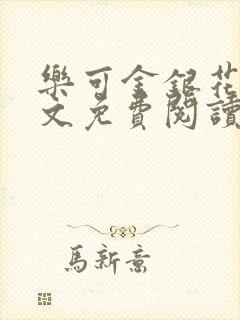 樂可金銀花
文免費閱讀
馬新意